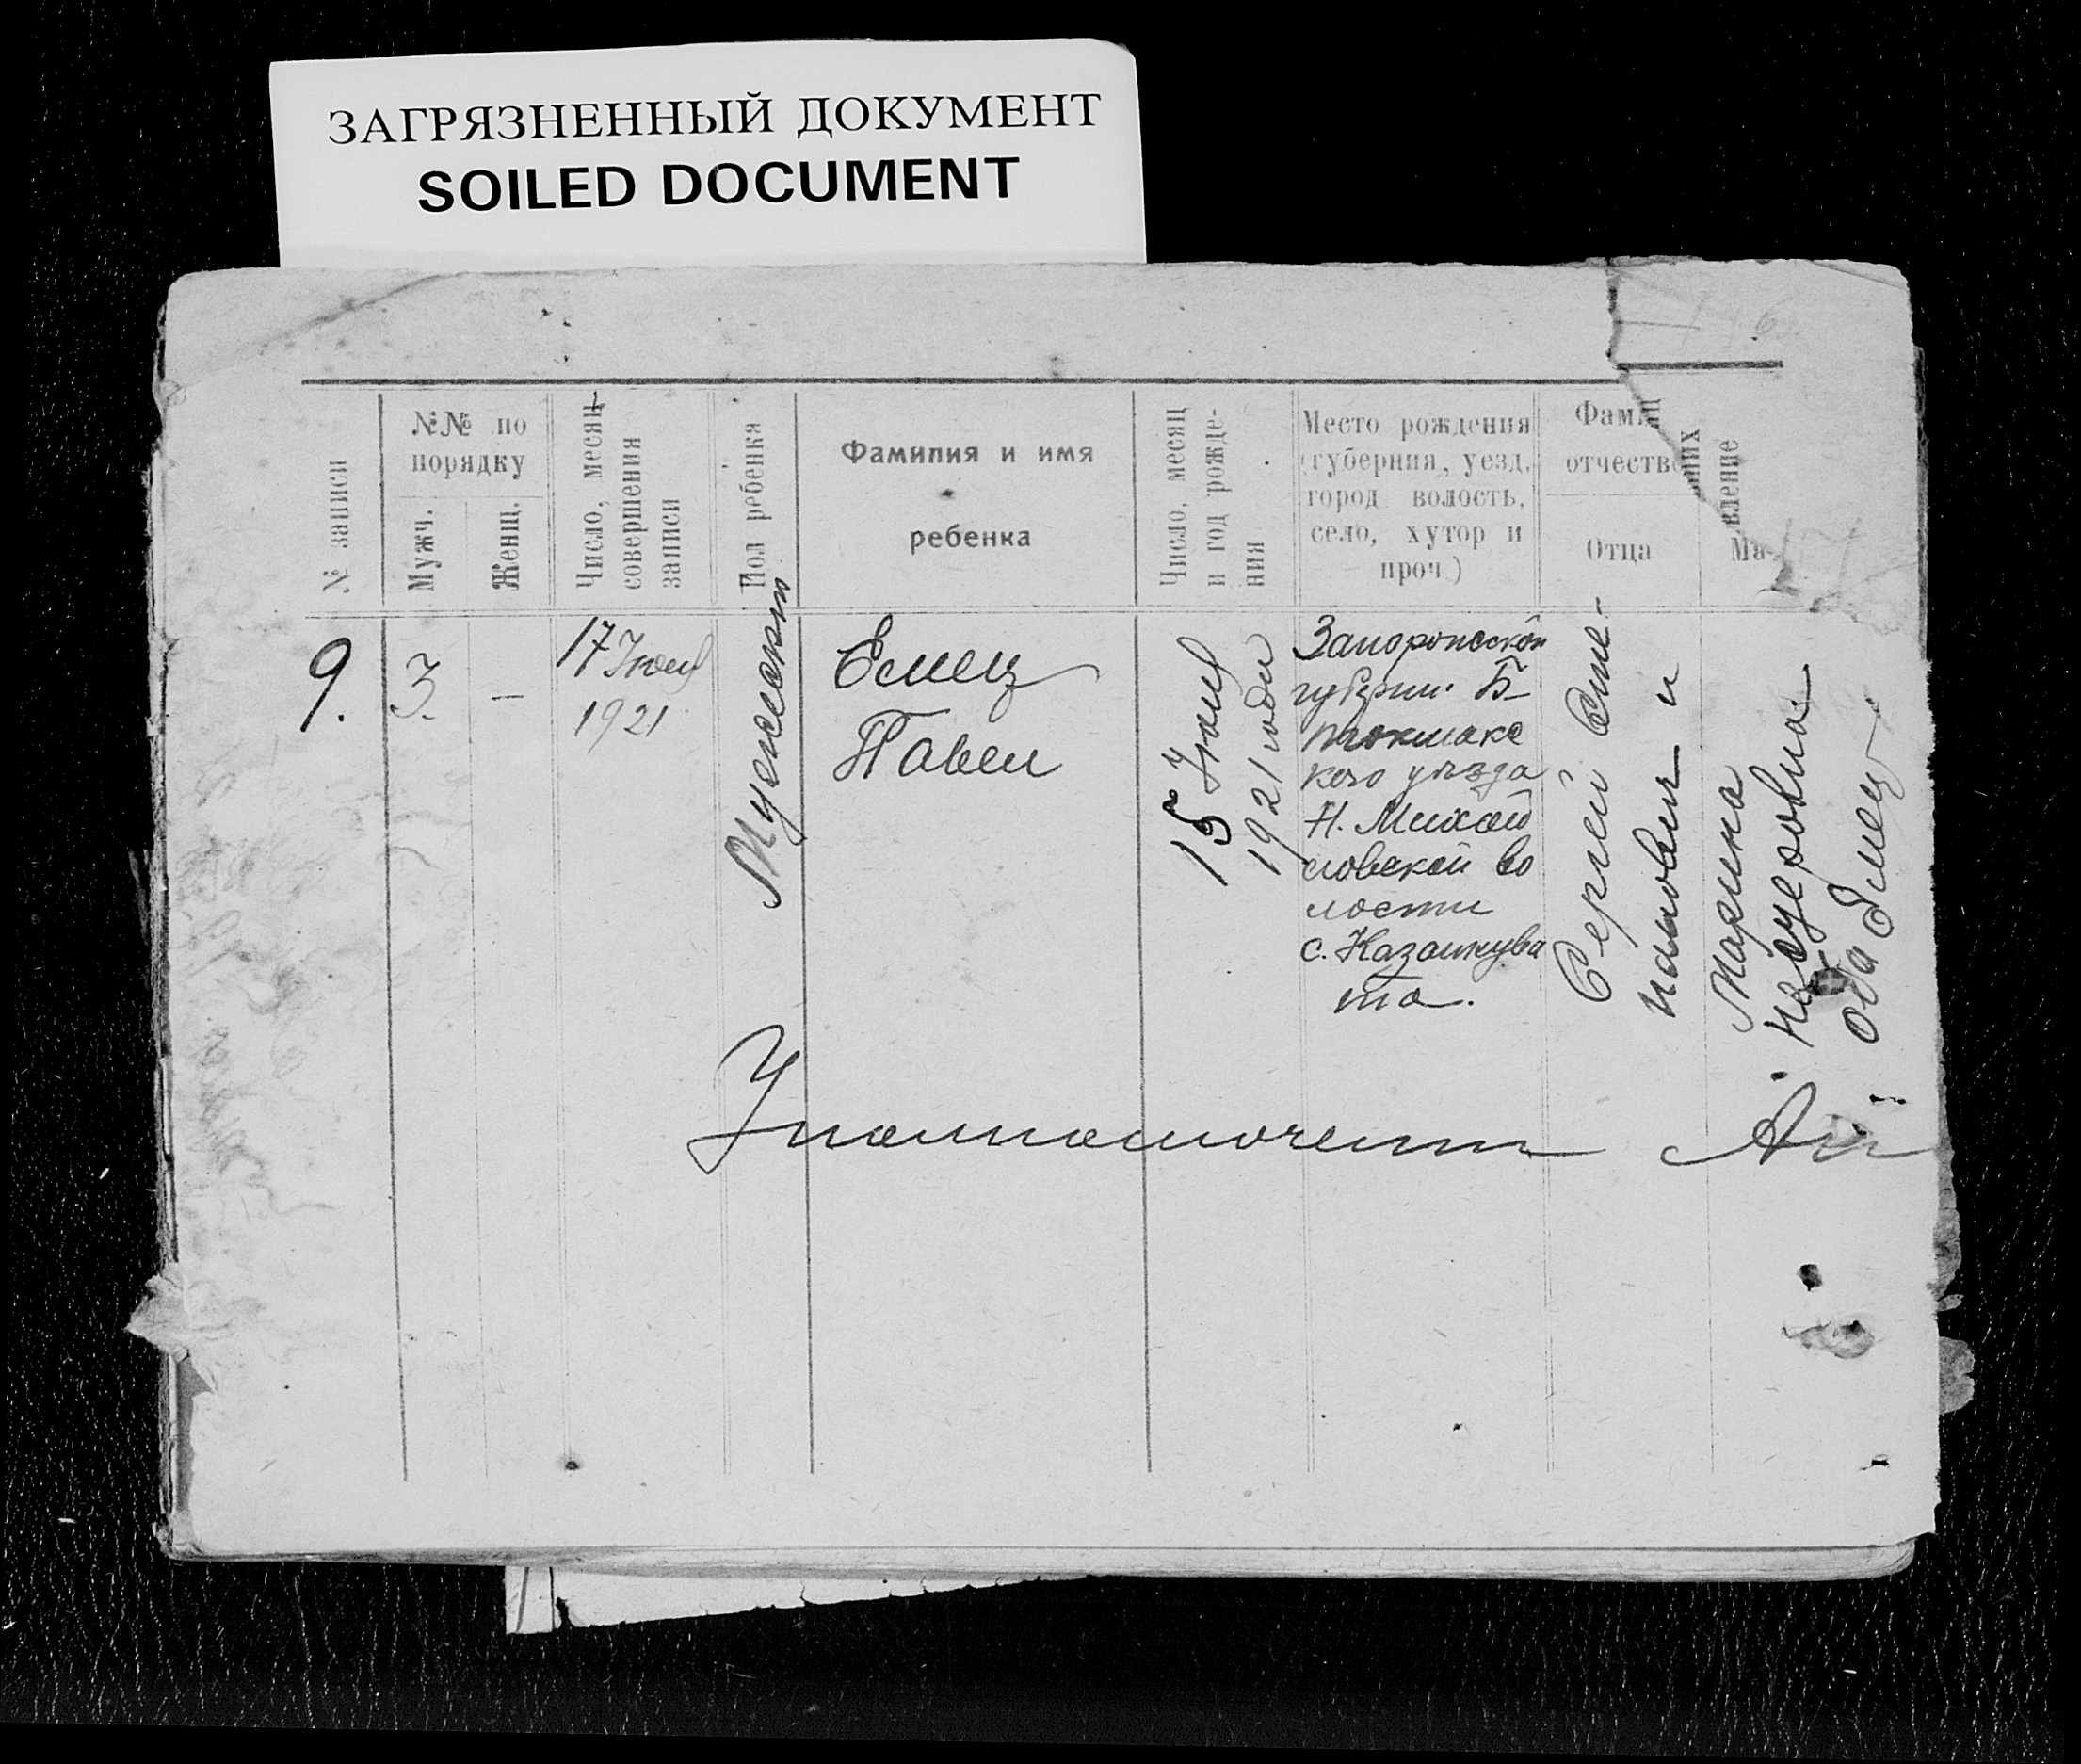 ЗАГРЯЗНЕННЫЙ ДОКУМЕНТ
SOILED DOCUMENT
№ записи
№№ по
порядку
Мужч.
Женщ.
Число, месяц
совершения
записи
Пол ребенка
Фамилия и имя
ребенка
Число, месяц
и год рожде-
ния
Место рождения
(губерния, уезд,
город волость,
село, хутор и
проч.)
Фам
отчеств
Отца
них
вление
Ма
9.
3.
—
17 Июля
1921
Мужского
Емец
Павел
15 Июля
1921 года
Запорожской
губернии Б-
токмакс
кого уезда
Н. Михай
ловской во
лости
с. Казанкува
та.
Сергей Сте-
панович и
Марина
оба Емец